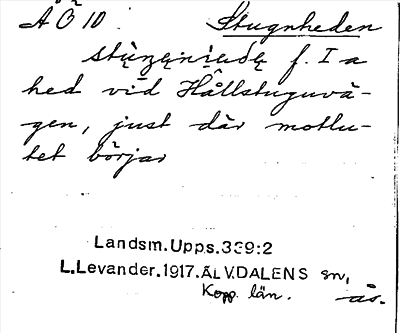 ÄÖ 10. Stugnheden
f. I a
hed vid Hållstuguvä-
gen, just där motlu-
tet börjar
Landsm.Upps.339:2
L.Levander.1917.ÄLVDALENS sn,
Kopp. län. ås.